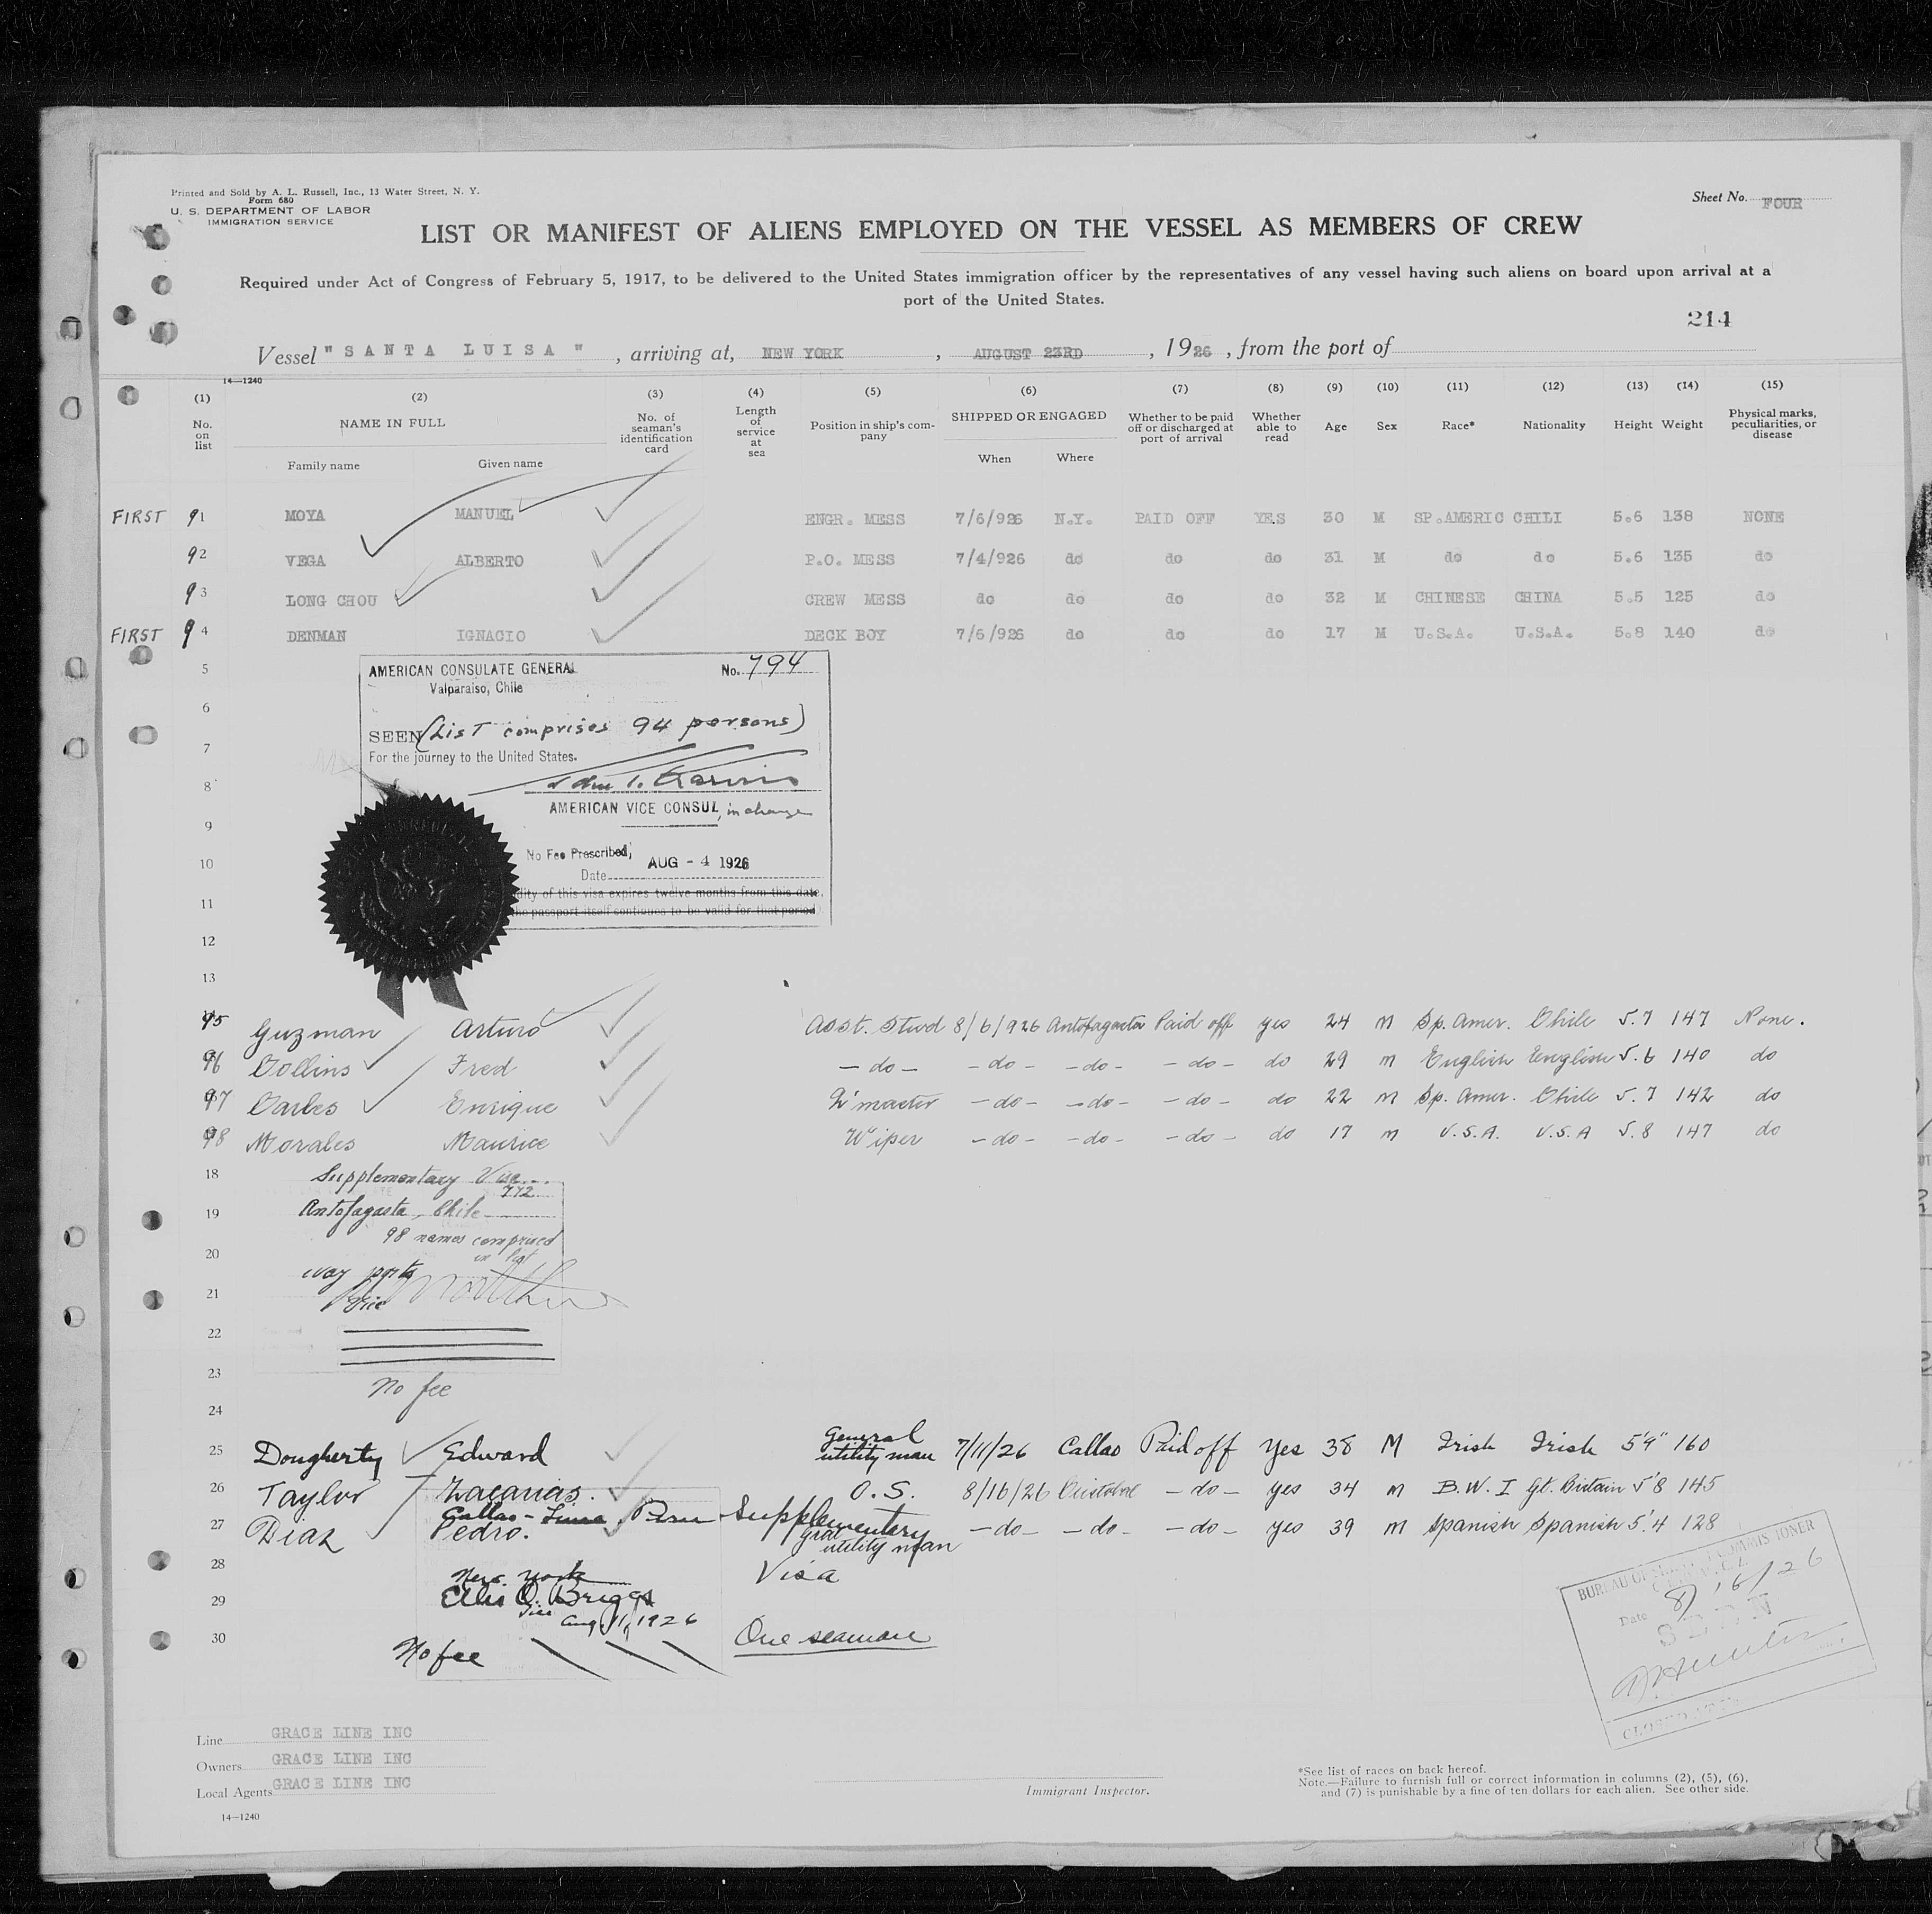 Printed and Sold by A. L. Russell, Inc., 13 Water Street, N. Y.
Form 680
U. S. DEPARTMENT OF LABOR
IMMIGRATION SERVICE
Sheet No. FOUR
LIST OR MANIFEST OF ALIENS EMPLOYED ON THE VESSEL AS MEMBERS OF CREW
Required under Act of Congress of February 5, 1917, to be delivered to the United States immigration officer by the representatives of any vessel having such aliens on board upon arrival at a
port of the United States.
214
Vessel "SANTA LUISA", arriving at, NEW YORK, AUGUST 23RD, 1926, from the port of
14—1240
(1) (2) (3) (4) (5) (6) (7) (8) (9) (10) (11) (12) (13) (14) (15)
No. on list NAME IN FULL No. of seaman's identification card Length of service at sea Position in ship's company SHIPPED OR ENGAGED Whether to be paid off or discharged at port of arrival Whether able to read Age Sex Race* Nationality Height Weight Physical marks, peculiarities, or disease
Family name Given name When Where
FIRST 91 MOYA MANUEL ENGR. MESS 7/6/926 N.Y. PAID OFF YES 30 M SP.AMERIC CHILI 5.6 138 NONE
92 VEGA ALBERTO P.O. MESS 7/4/926 do do do 31 M do do 5.6 135 do
93 LONG CHOU CREW MESS do do do do 32 M CHINESE CHINA 5.5 125 do
FIRST 94 DENMAN IGNACIO DECK BOY 7/6/926 do do do 17 M U.S.A. U.S.A. 5.8 140 do
5
AMERICAN CONSULATE GENERAL No. 794
Valparaiso, Chile
6
SEEN (List comprises 94 persons)
7
For the journey to the United States.
8
AMERICAN VICE CONSUL, in charge
9
No Fee Prescribed,
10
Date AUG - 4 1926
dity of this visa expires twelve months from this date,
11
he passport itself continues to be valid for that period
12
13
95 Guzman Arturo Asst. Stwd 8/6/926 Antofagasta Paid off yes 24 m Sp. Amer. Chile 5.7 147 None.
96 Collins Fred - do - - do - - do - - do - do 29 m English English 5.6 140 do
97 Carles Enrique Q'master - do - - do - - do - do 22 m Sp. Amer. Chile 5.7 142 do
98 Morales Maurice Wiper - do - - do - - do - do 17 m U.S.A. U.S.A 5.8 147 do
18
Supplementary
772
19
Antofagasta, Chile
98 names comprised
20
in list
way ports
21
Vice
22
23
No fee
24
25 Dougherty Edward General utility man 7/11/26 Callao Paid off Yes 38 M Irish Irish 5'9" 160
26 Taylor Zacarias. O.S. 8/16/26 Cristobal - do - yes 34 m B.W.I Gt. Britain 5'8 145
Callao - Lima, Peru Supplementary
27 Diaz Pedro. Gral utility man - do - - do - - do - yes 39 m Spanish Spanish 5'.4 128
28
New York Visa
29
Ellis O. Briggs
Vice Aug. 11, 1926
30
No fee One seaman
Date 8/16/26
SEEN
Line GRACE LINE INC
Owners GRACE LINE INC
Local Agents GRACE LINE INC
14—1240
Immigrant Inspector.
*See list of races on back hereof.
Note.—Failure to furnish full or correct information in columns (2), (5), (6),
and (7) is punishable by a fine of ten dollars for each alien. See other side.